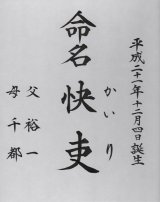 平成二十一年十二月四日誕生
命名 快吏
かいり
父 裕一
母 千都